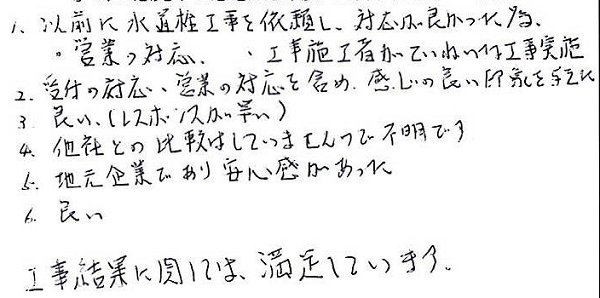 1、以前に水道栓工事を依頼し、対応が良かった為、
・営業の対応、・工事施工者がていねいな工事実施
2、受付の対応、営業の対応を含め、感じの良い印象を与えた
3 良い、(レスポンスが早い)
4、他社との比較はしていませんので不明です
5、地元企業であり安心感があった
6、良い
工事結果に関しては、満足しています。